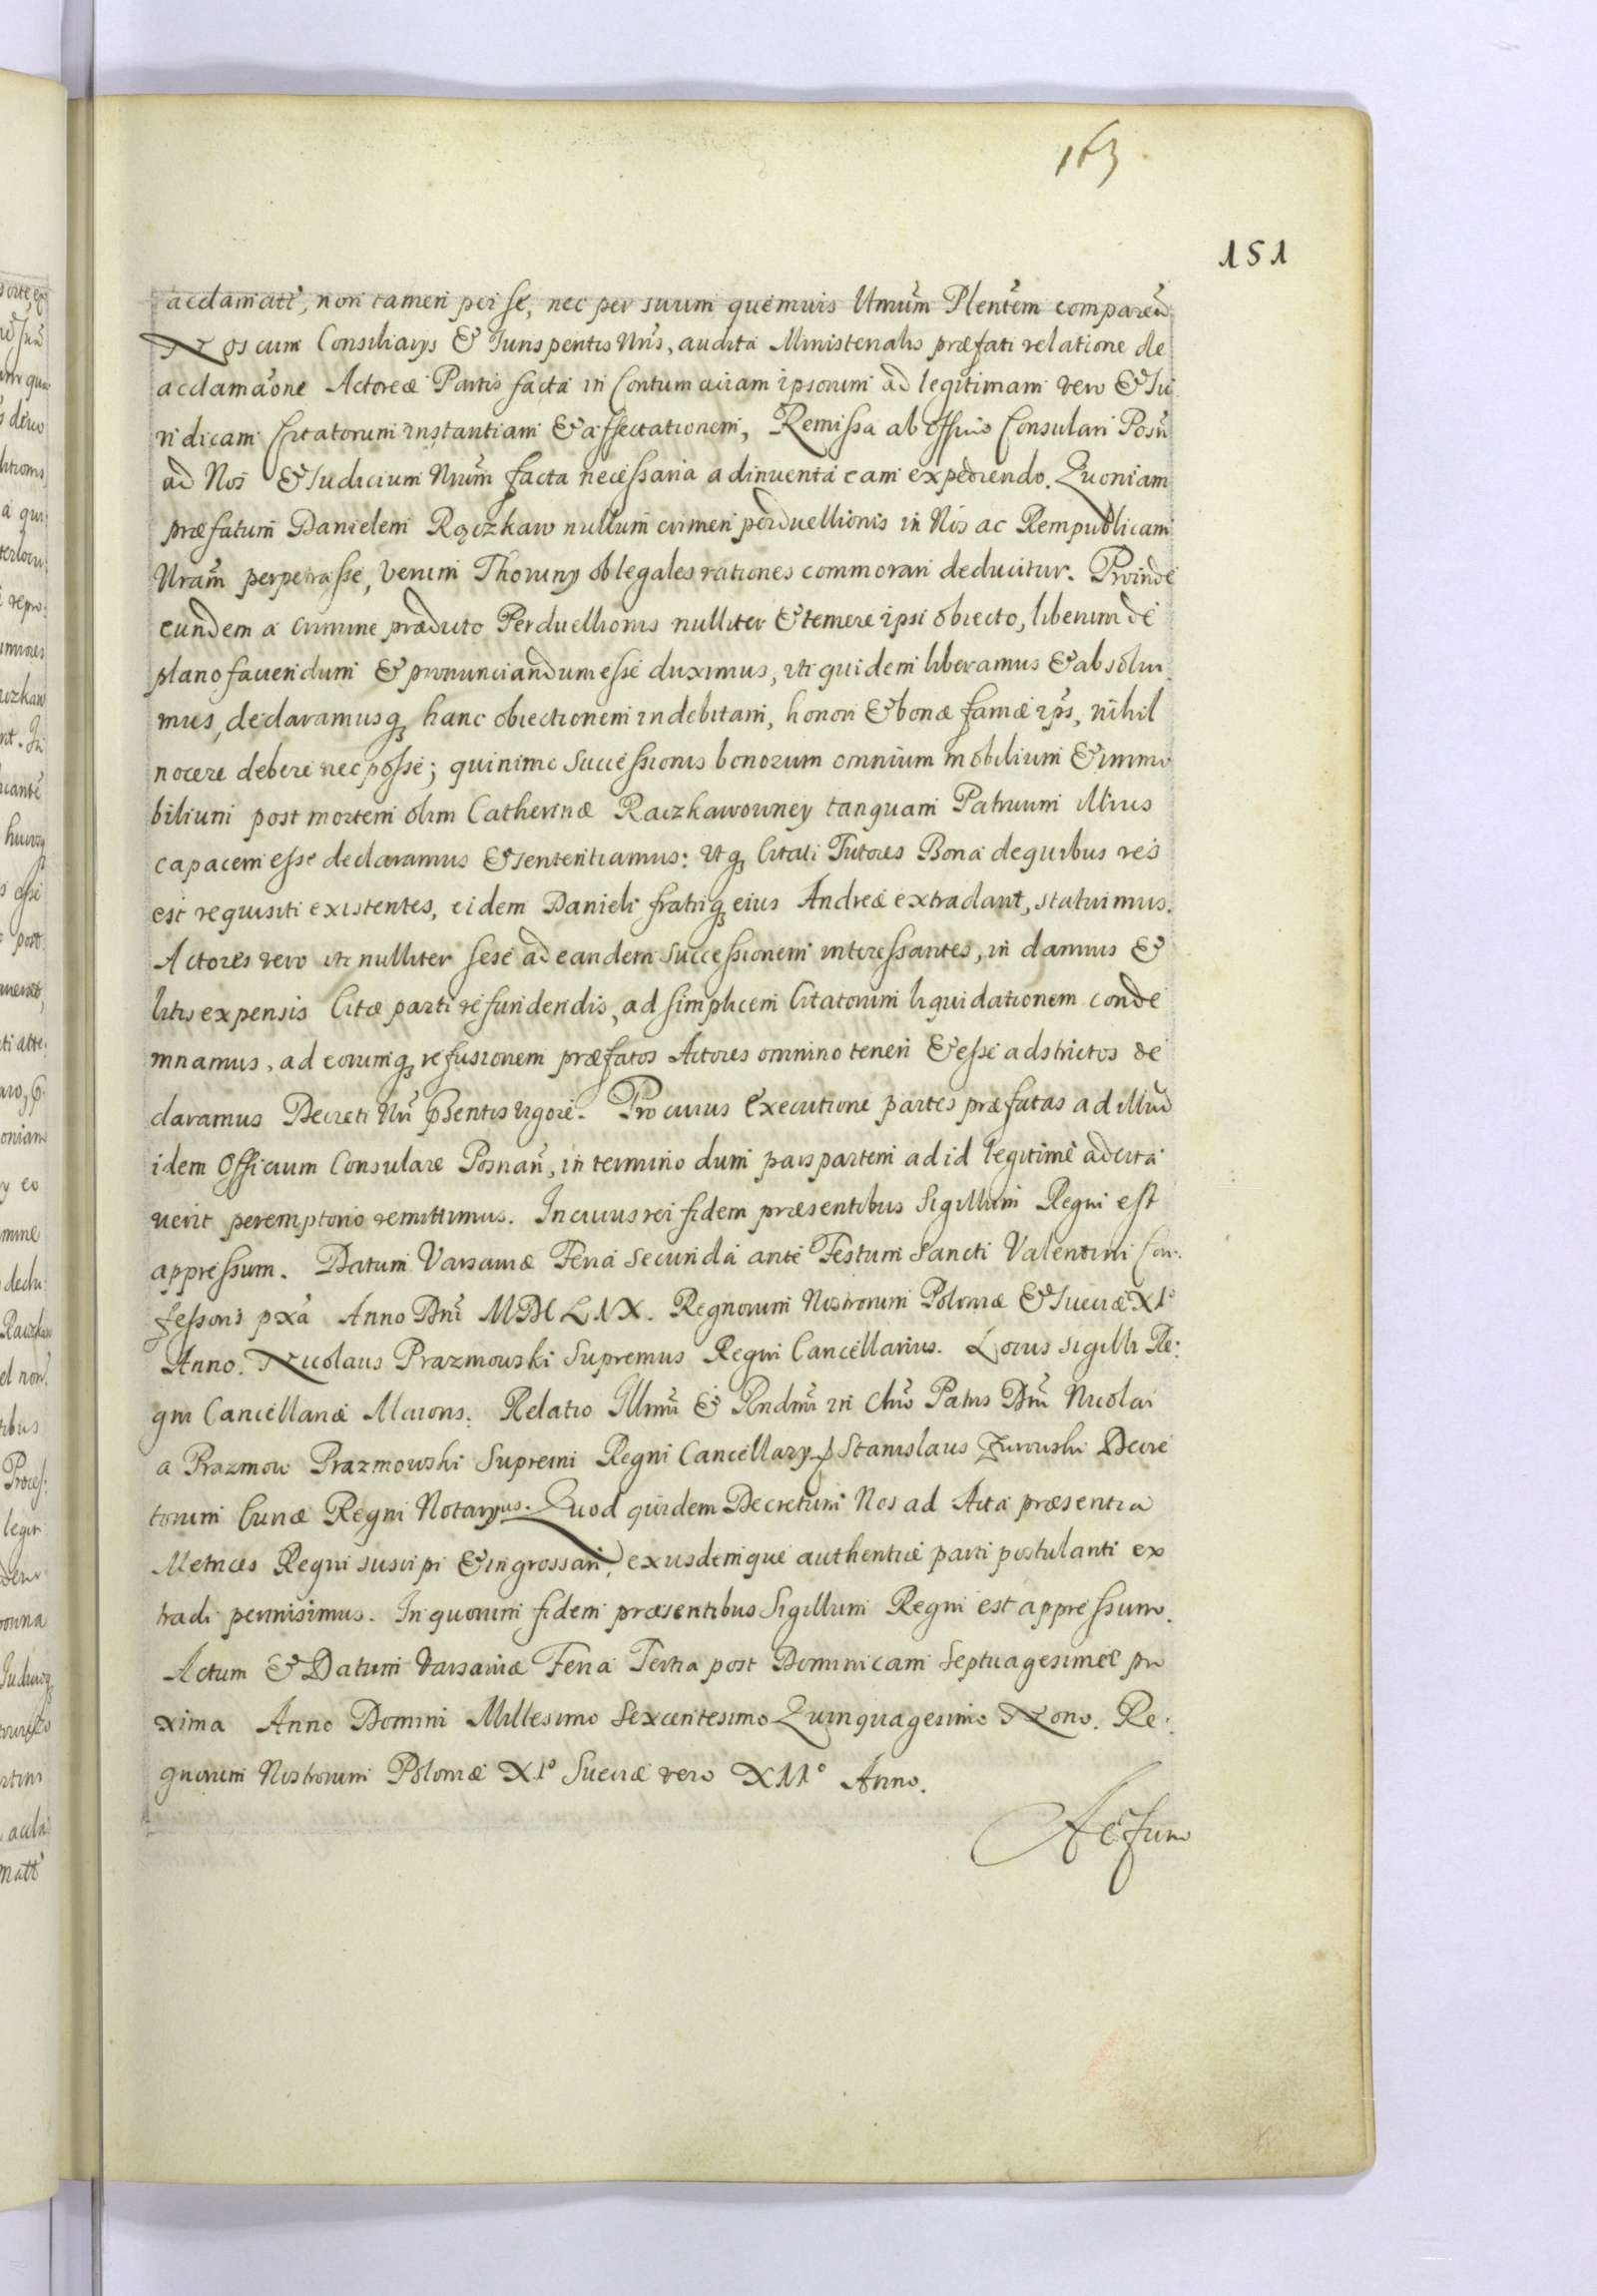 163
151
acclamati, non tamen per se, nec per suum quemvis Ltmūm Plentem comparen
Nos cum Consiliarys & Jurisperitis Nris, audita Ministerialis præfati relatione de
acclamaōne Actoreæ Partis facta in Contumaciam ipsorum ad legitimam vero & Ju
ridicam Citatorum instantiam & affectationem, Remissa ab officio Consulari Posn
ad Nos & Judicium Nrum facta necessaria adinventa eam expediendo. Quoniam
præfatum Danielem Rączkaw nullum crimen perduellionis in Nos ac Rempublicam
Nram perpetrasse, verum Thoruny ob legales rationes commorari deducitur. Proinde
eundem a crimine prædicto Perduellionis nulliter & temere ipsi obiecto, liberum de
plano faciendum & pronunciandum esse duximus, uti quidem liberamus & absolvi
mus, declaramusq hanc obiectionem indebitam, honori & bonæ famæ ips, nihil
nocere debere nec posse; quinimo successionis bonorum omnium mobilium & immo
bilium post mortem olim Catherinæ Raczkawowney tanquam Patruum illius
capacem esse declaramus & sententiamus: Utq Citati Tutores Bona de quibus res
est requisiti existentes, eidem Danieli fratriq eius Andreæ extradant, statuimus.
Actores vero uti nulliter sese ad eandem successionem interessantes, in damnis &
litis expensis Citæ parti refundendis, ad simplicem Citatorum liquidationem conde
mnamus, ad eorumq refusionem præfatos Actores omnino teneri & esse adstrictos de
claramus Decreti Nri pñtis vigore. Pro cuius executione partes præfatas ad illud
idem Officium Consulare Posnan, in termino dum pars partem ad id legitime adcita
verit peremptorio remittimus. In cuius rei fidem præsentibus Sigillum Regni est
appressum. Datum Varsaviæ Feria secunda ante Festum Sancti Valentini Con
fessoris pxa Anno Dni MDCLIX. Regnorum Nostrorum Poloniæ & Sueciæ XI°
Anno. Nicolaus Prazmowski Supremus Regni Cancellarius. Locus sigilli Re:
gni Cancellariæ Maioris. Relatio Illmi & Rndmi in Chro Patris Dni Nicolai
a Prazmow Prazmowski Supremi Regni Cancellary Stanislaus Zurowski Decre
torum Curiæ Regni Notaryus. Quod quidem Decretum Nos ad Acta præsentia
Metrices Regni suscipi & ingrossari, exusdemque authentice parti postulanti ex
tradi permisimus. In quorum fidem præsentibus Sigillum Regni est appressum.
Actum & Datum Varsaviæ Feria Tertia post Dominicam Septuagesimæ pro
xima Anno Domini Millesimo Sexcentesimo Quinquagesimo Nono. Re:
gnorum Nostrorum Poloniæ XI° Sueciæ vero XII° Anno.
Actum